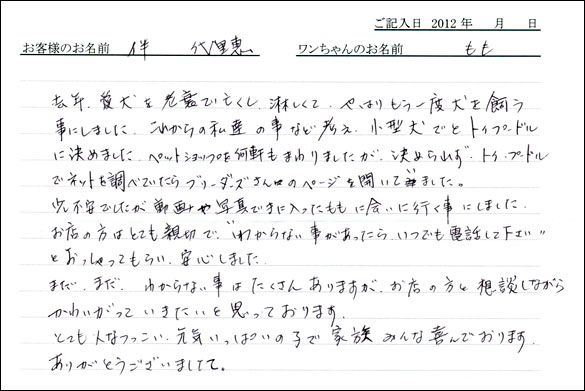 ご記入日 2012年 月 日
お客様のお名前 伴 代里恵 ワンちゃんのお名前 もも
去年、愛犬を老衰で亡くし、淋しくて、やはりもう一度犬を飼う
事にしました。これからの私達の事など考え、小型犬でとトイプードル
に決めました。ペットショップを何軒もまわりましたが、決められず、トイプードル
でネットを調べていたらブリーダーズさんのページを開いてみました。
少し不安でしたが動画や写真で気に入ったももに会いに行く事にしました。
お店の方はとても親切で、"わからない事があったら、いつでも電話して下さい"
とおっしゃってもらい、安心しました。
まだ、まだ、わからない事はたくさんありますが、お店の方と相談しながら
かわいがっていきたいと思っております。
とても人なつっこい、元気いっぱいの子で家族みんな喜んでおります。
ありがとうございました。